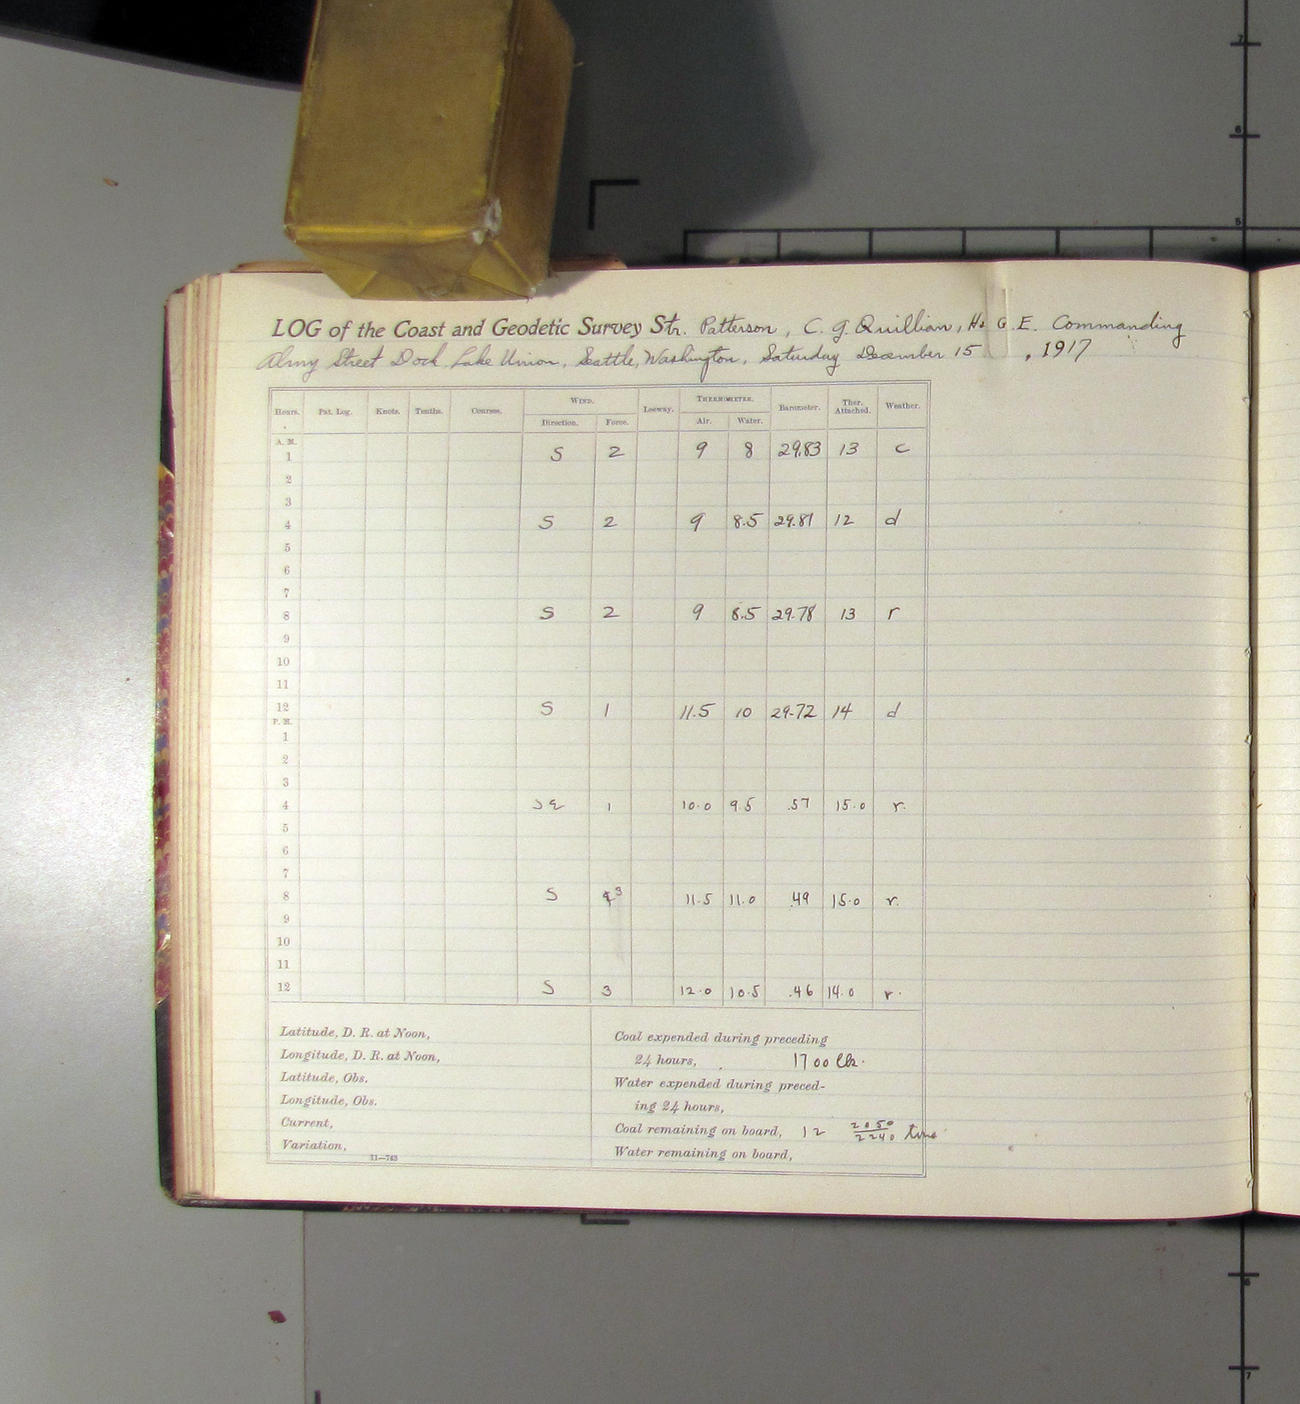 LOG of the Coast and Geodetic Survey Str. Patterson, C. G. Quillian, H. & G. E. Commanding
Street Dock, Lake Union, Seattle, Washington, Saturday December 15, 1917
Hours. Pat. Log. Knots. Tenths. Courses. WIND. Leeway. THERMOMETER. Barometer. Ther. Attached. Weather.
Direction. Force. Air. Water.
A. M.
1 S 2 9 8 29.83 13 c
2
3
4 S 2 9 8.5 29.81 12 d
5
6
7
8 S 2 9 8.5 29.78 13 r
9
10
11
12 S 1 11.5 10 29.72 14 d
P. M.
1
2
3
4 SE 1 10.0 9.5 .57 15.0 r.
5
6
7
8 S 3 11.5 11.0 .49 15.0 r.
9
10
11
12 S 3 12.0 10.5 .46 14.0 r.
Latitude, D. R. at Noon,
Longitude, D. R. at Noon,
Latitude, Obs.
Longitude, Obs.
Current,
Variation,
11—763
Coal expended during preceding
24 hours, 1700 lbs.
Water expended during preced-
ing 24 hours,
Coal remaining on board, 12 2050/2240 tons
Water remaining on board,
7
6
5
6
7